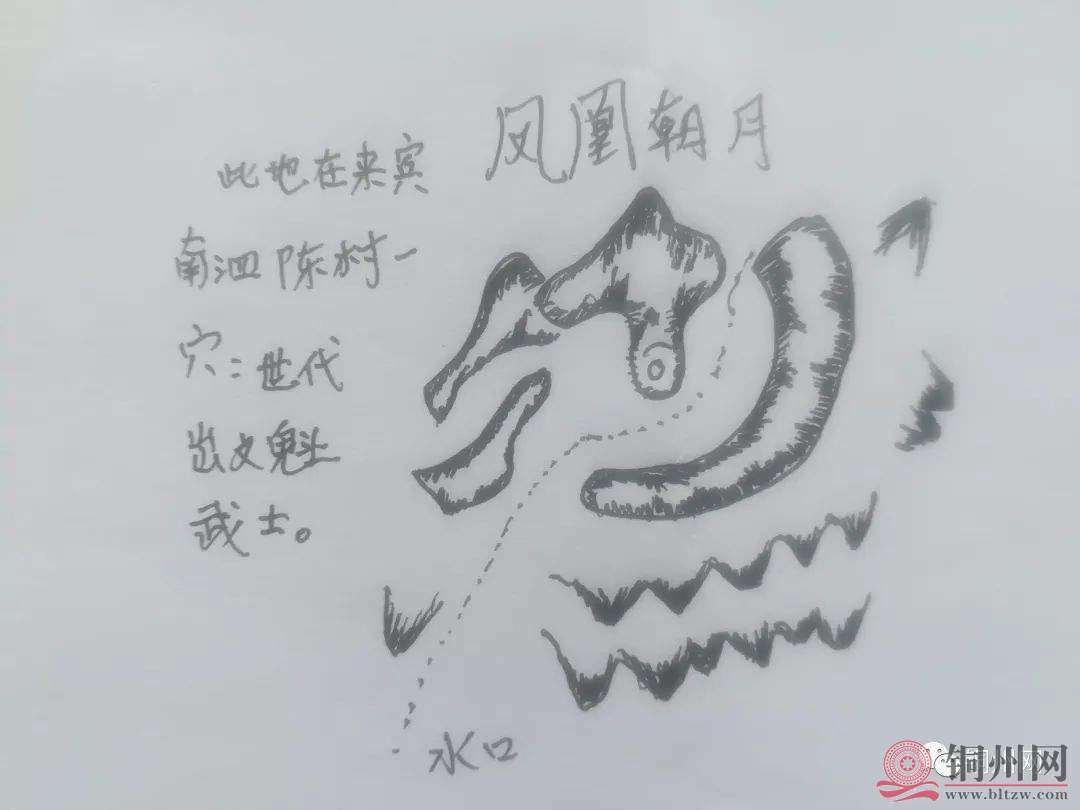 凤凰朝月
此地在来宾
南泗陈村一
穴：世代
出文魁
武士。
水口
铜州网
www.bltzw.com